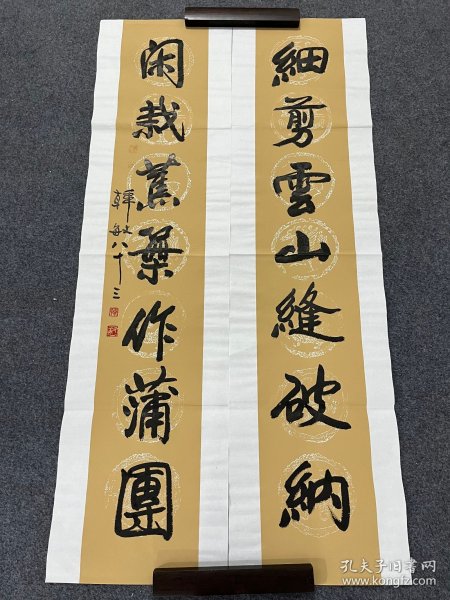 細剪雲山縫破納
閑栽蕉葉作蒲團
韓敏八十三
孔夫子旧书网
www.kongfz.com